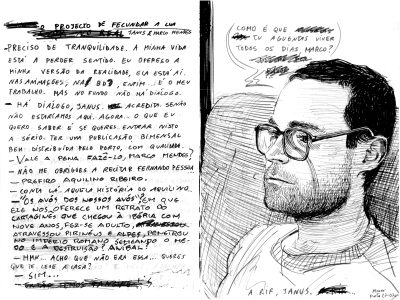 O PROJECTO FECUNDAR A LUA
JANUS & MARCO MENDES
- PRECISO DE TRANQUILIDADE. A MINHA VIDA
ESTÁ A PERDER SENTIDO. EU OFEREÇO A
MINHA VERSÃO DA REALIDADE, ELA ESTÁ AÍ.
NAS IMAGENS, NA BD, ENFIM... É O MEU
TRABALHO. MAS NO FUNDO NÃO HÁ DIÁLOGO.
- HÁ DIÁLOGO, JANUS. ACREDITO. SENÃO
NÃO ESTARÍAMOS AQUI. AGORA... O QUE EU
QUERO SABER É SE QUERES ENTRAR NISTO
A SÉRIO. TER UM PUBLICAÇÃO BIMENSAL
BEM DISTRIBUÍDA PELO PORTO, COM QUALIDADE.
- VALE A PENA FAZÊ-LO, MARCO MENDES?
- NÃO ME OBRIGUES A RECITAR FERNANDO PESSOA
- PREFIRO AQUILINO RIBEIRO.
- CONTA LÁ AQUELA HISTÓRIA DO AQUILINO.
- "OS AVÓS DOS NOSSOS AVÓS", EM QUE
ELE NOS OFERECE UM RETRATO DO
CARTAGINÊS QUE CHEGOU À IBÉRIA COM
NOVE ANOS, FEZ-SE ADULTO,
ATRAVESSOU PIRINÉUS E ALPES, PENETROU
NO IMPÉRIO ROMANO SEMEANDO O ME-
DO E A DESTRUIÇÃO? ANIBAL?
- HMM... ACHO QUE NÃO ERA ESSA... QUERES
QUE TE LEVE A CASA?
- SIM...
COMO É QUE
TU AGUENTAS VIVER
TODOS OS DIAS MARCO?
A RIR, JANUS.